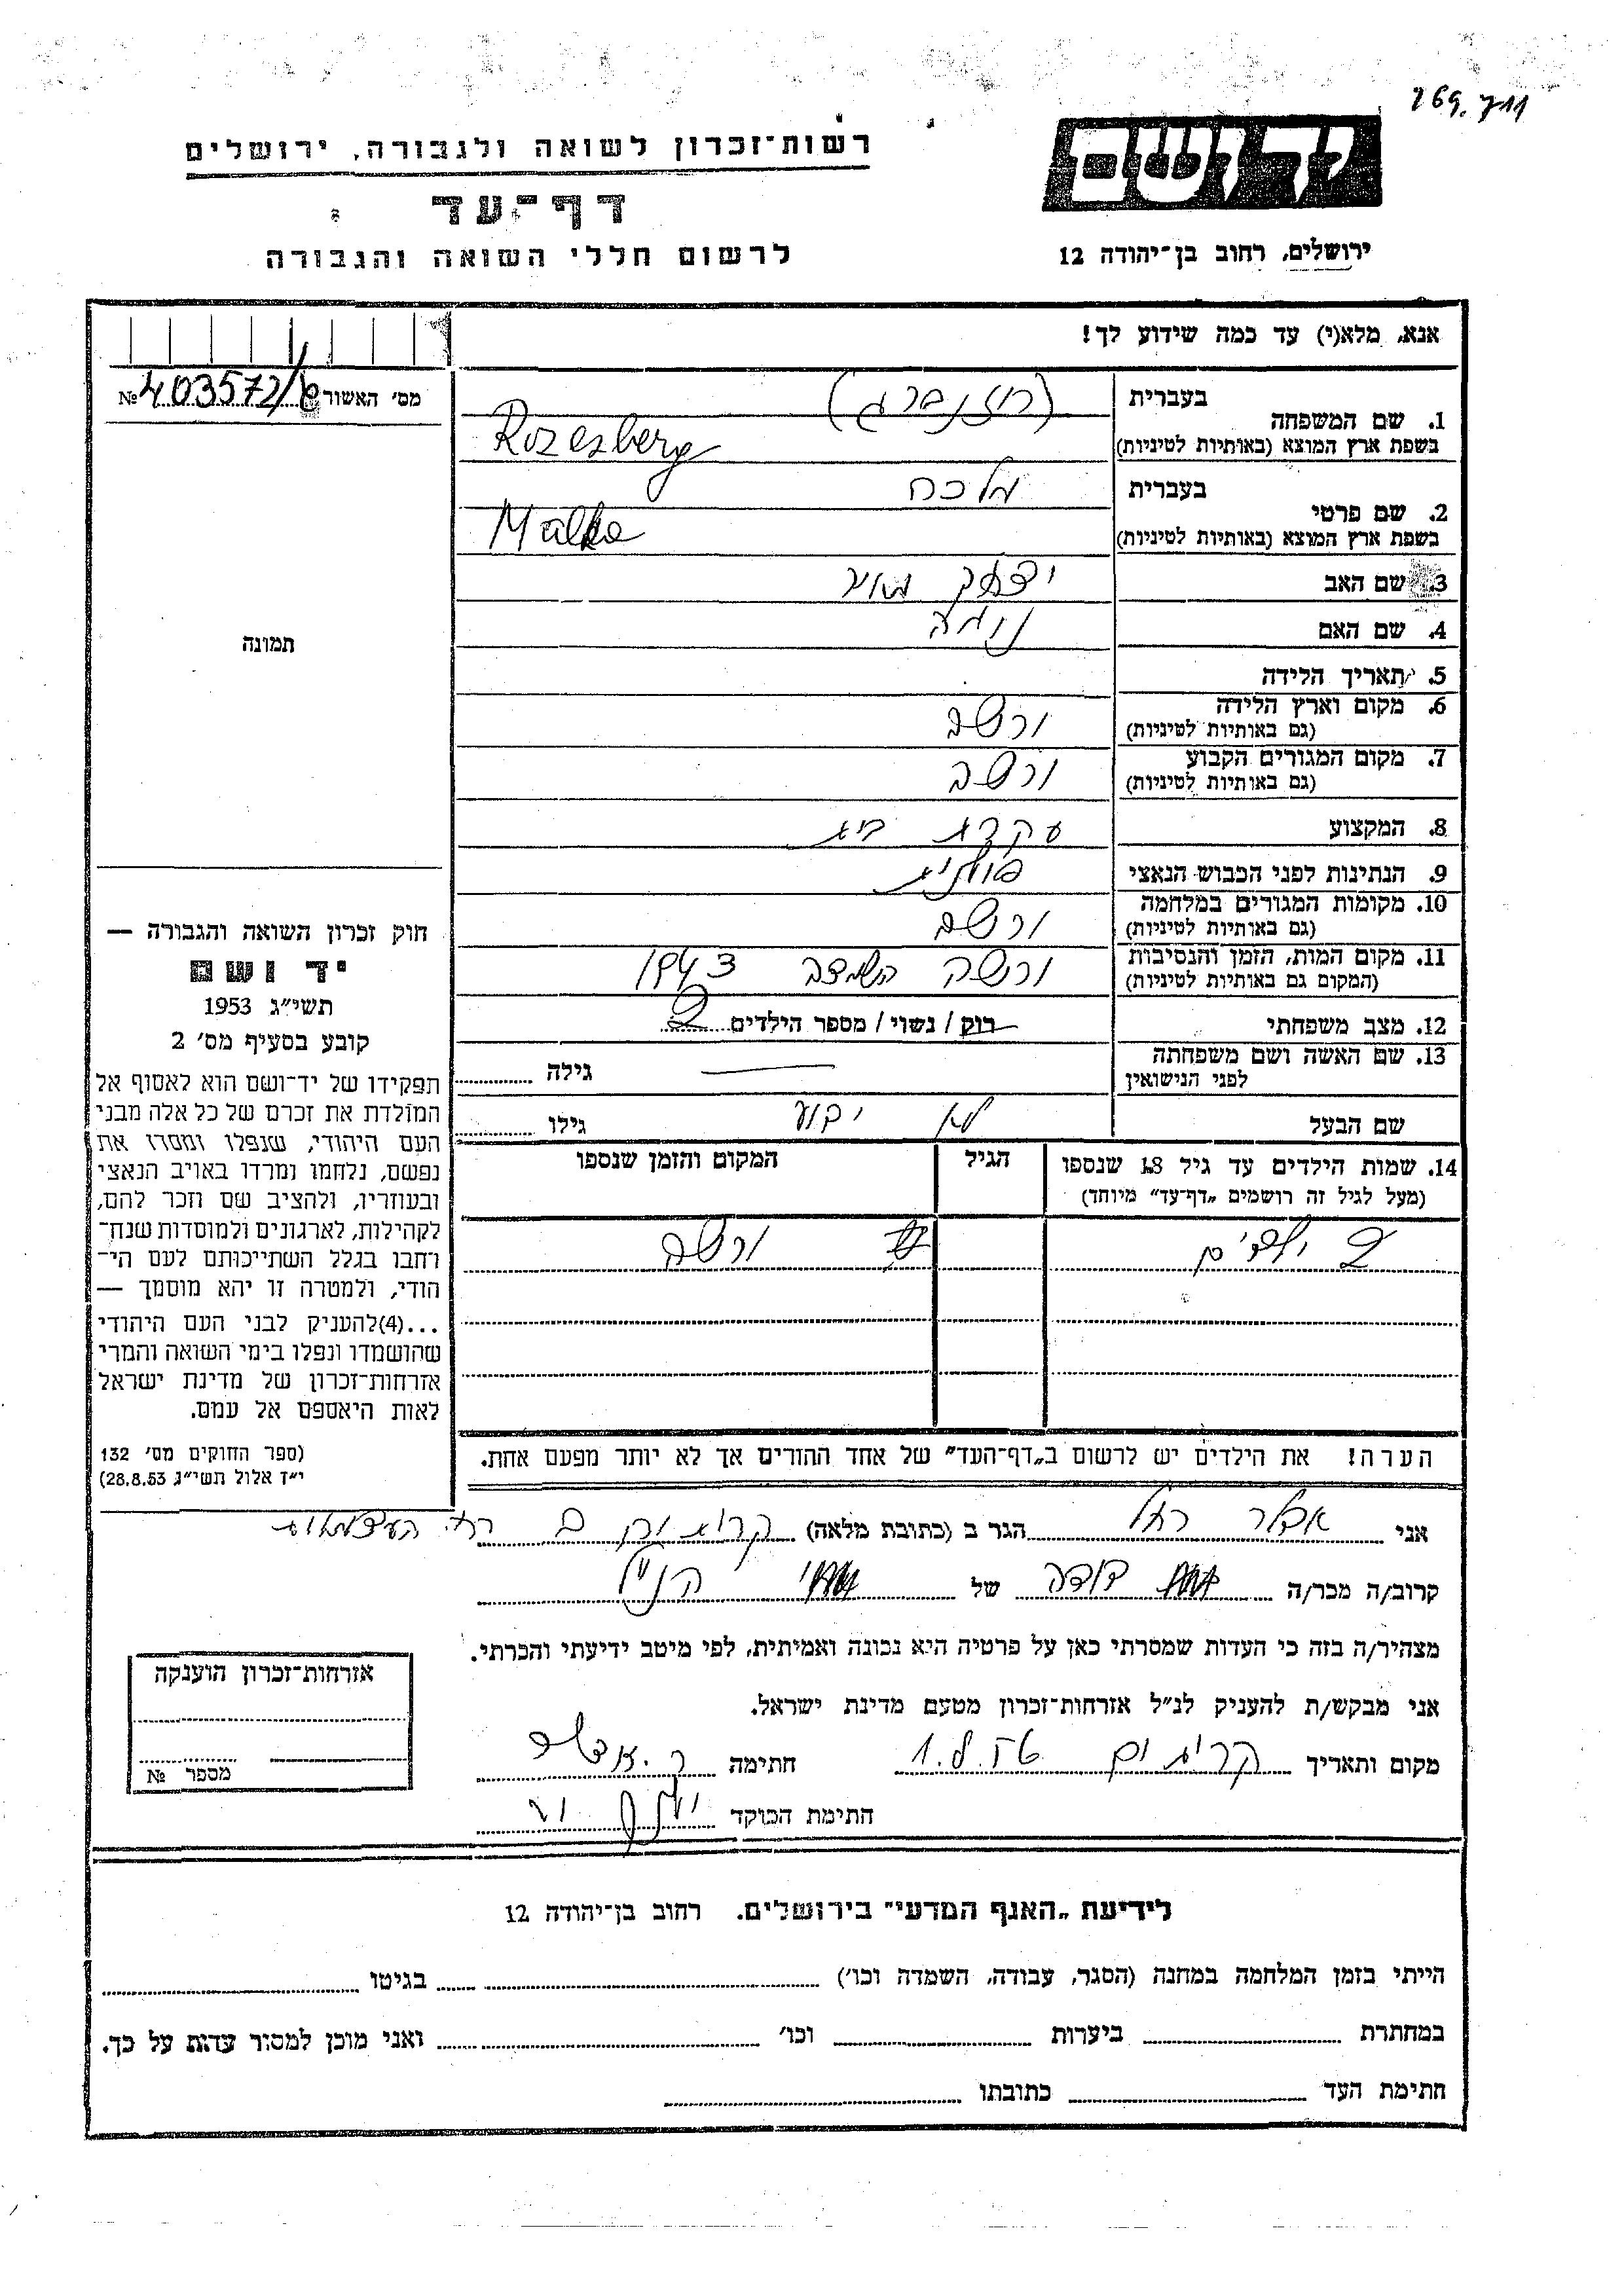 269.711
ידושם
ירושלים, רחוב בן־יהודה 12
רשות־זכרון לשואה ולגבורה, ירושלים
דף־עד
לרשום חללי השואה והגבורה
אנא, מלא(י) עד כמה שידוע לך!
מס׳ האשור № 403572/6
1. שם המשפחה בעברית (רוזנברג)
בשפת ארץ המוצא (באותיות לטיניות) Rozenberg
2. שם פרטי בעברית מלכה
בשפת ארץ המוצא (באותיות לטיניות) Malka
3. שם האב יצחק מאיר
4. שם האם
5. תאריך הלידה
6. מקום וארץ הלידה ורשה
(גם באותיות לטיניות)
7. מקום המגורים הקבוע ורשה
(גם באותיות לטיניות)
8. המקצוע עקרת בית
9. הנתינות לפני הכבוש הנאצי פולנית
10. מקומות המגורים במלחמה ורשה
(גם באותיות לטיניות)
11. מקום המות, הזמן והנסיבות ורשה השמדה 1943
(המקום גם באותיות לטיניות)
12. מצב משפחתי רוק / נשוי / מספר הילדים 2
13. שם האשה ושם משפחתה לפני הנישואין — גילה
שם הבעל לא ידוע גילו
14. שמות הילדים עד גיל 18 שנספו
(מעל לגיל זה רושמים „דף־עד" מיוחד)
הגיל
המקום והזמן שנספו
2 ילדים ורשה
הערה! את הילדים יש לרשום ב„דף־העד" של אחד ההורים אך לא יותר מפעם אחת.
תמונה
חוק זכרון השואה והגבורה —
יד ושם
תשי״ג 1953
קובע בסעיף מס׳ 2
תפקידו של יד־ושם הוא לאסוף אל
המולדת את זכרם של כל אלה מבני
העם היהודי, שנפלו ומסרו את
נפשם, נלחמו ומרדו באויב הנאצי
ובעוזריו, ולהציב שם וזכר להם,
לקהילות, לארגונים ולמוסדות שנח־
רבו בגלל השתייכותם לעם הי־
הודי, ולמטרה זו יהא מוסמך —
...(4)להעניק לבני העם היהודי
שהושמדו ונפלו בימי השואה והמרי
אזרחות־זכרון של מדינת ישראל
לאות היאספם אל עמם.
(ספר החוקים מס׳ 132
י״ז אלול תשי״ג 28.8.53)
אני רחל הגר ב (כתובת מלאה) קרית ים ב רח׳ העצמאות
קרוב/ה מכר/ה דודה של הנ״ל
מצהיר/ה בזה כי העדות שמסרתי כאן על פרטיה היא נכונה ואמיתית, לפי מיטב ידיעתי והכרתי.
אני מבקש/ת להעניק לנ״ל אזרחות־זכרון מטעם מדינת ישראל.
מקום ותאריך קרית ים 1.8.56 חתימה
חתימת הפוקד
אזרחות־זכרון הוענקה
מספר №
לידיעת „האגף המדעי" בירושלים. רחוב בן־יהודה 12
הייתי בזמן המלחמה במחנה (הסגר, עבודה, השמדה וכו׳) בגיטו
במחתרת ביערות וכו׳ ואני מוכן למסור עדות על כך.
חתימת העד כתובתו